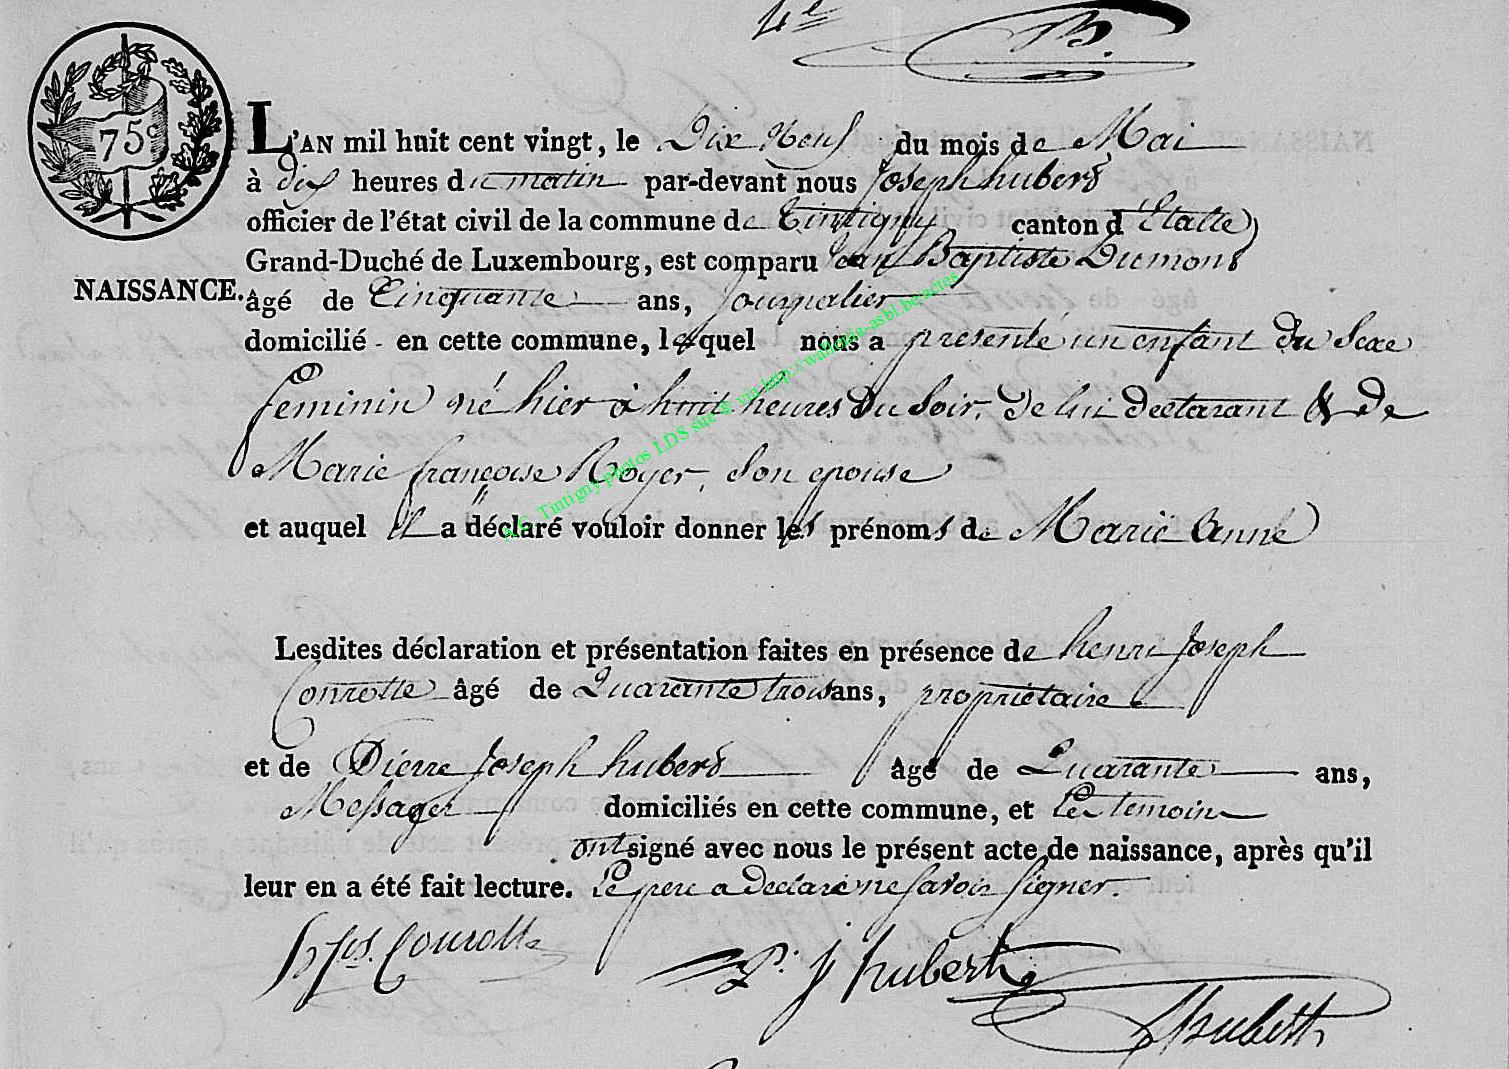 4e B.
75c
L'AN mil huit cent vingt, le Dix Neuf du mois de Mai
à dix heures du matin par-devant nous Joseph hubert
officier de l'état civil de la commune de Tintigny canton d'Etalle
Grand-Duché de Luxembourg, est comparu Jean Baptiste Dumont
NAISSANCE. âgé de Cinquante ans, Journalier
domicilié en cette commune, lequel nous a presenté un enfant du Sexe
feminin né hier à huit heures du Soir, de lui declarant & de
Marie françoise Royer, Son epouse
et auquel il a déclaré vouloir donner les prénoms de Marie Anne
Lesdites déclaration et présentation faites en présence de henri Joseph
Conrotte âgé de Quarante trois ans, propriétaire
et de Pierre Joseph hubert âgé de Quarante ans,
Messager domiciliés en cette commune, et Les temoins
ont signé avec nous le présent acte de naissance, après qu'il
leur en a été fait lecture. Le pere a declaré ne Savoir Signer.
h Jos. Conrotte P. J hubert
J hubert
A.G. Tintigny photos LDS site © via http://wallonia-asbl.be/actes